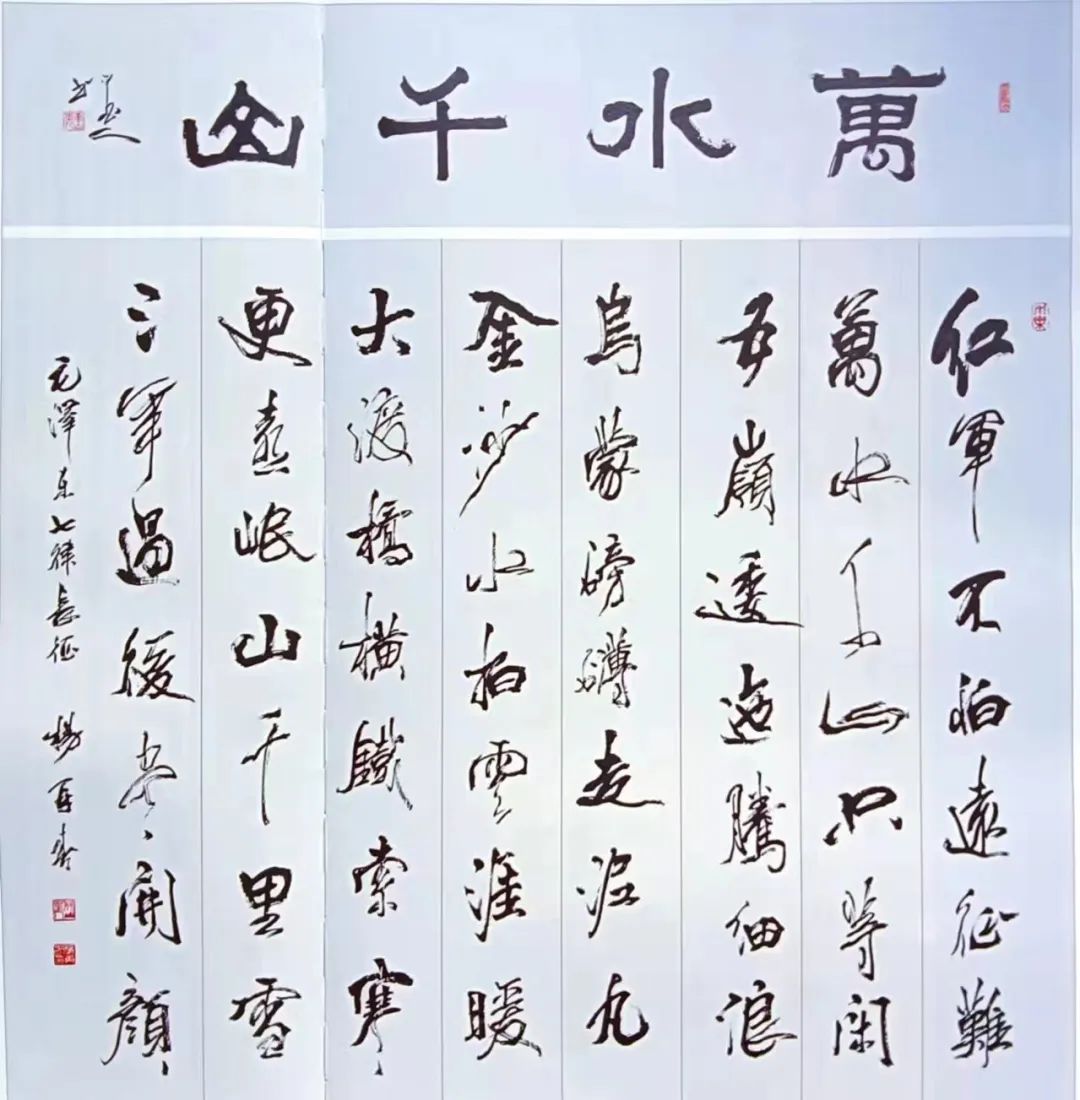 萬水千山
紅軍不怕遠征難
萬水千山只等閑
五嶺逶迤騰細浪
烏蒙磅礴走泥丸
金沙水拍雲涯暖
大渡橋橫鐵索寒
更喜岷山千里雪
三軍過後盡開顏
毛澤东七律長征 楊再春